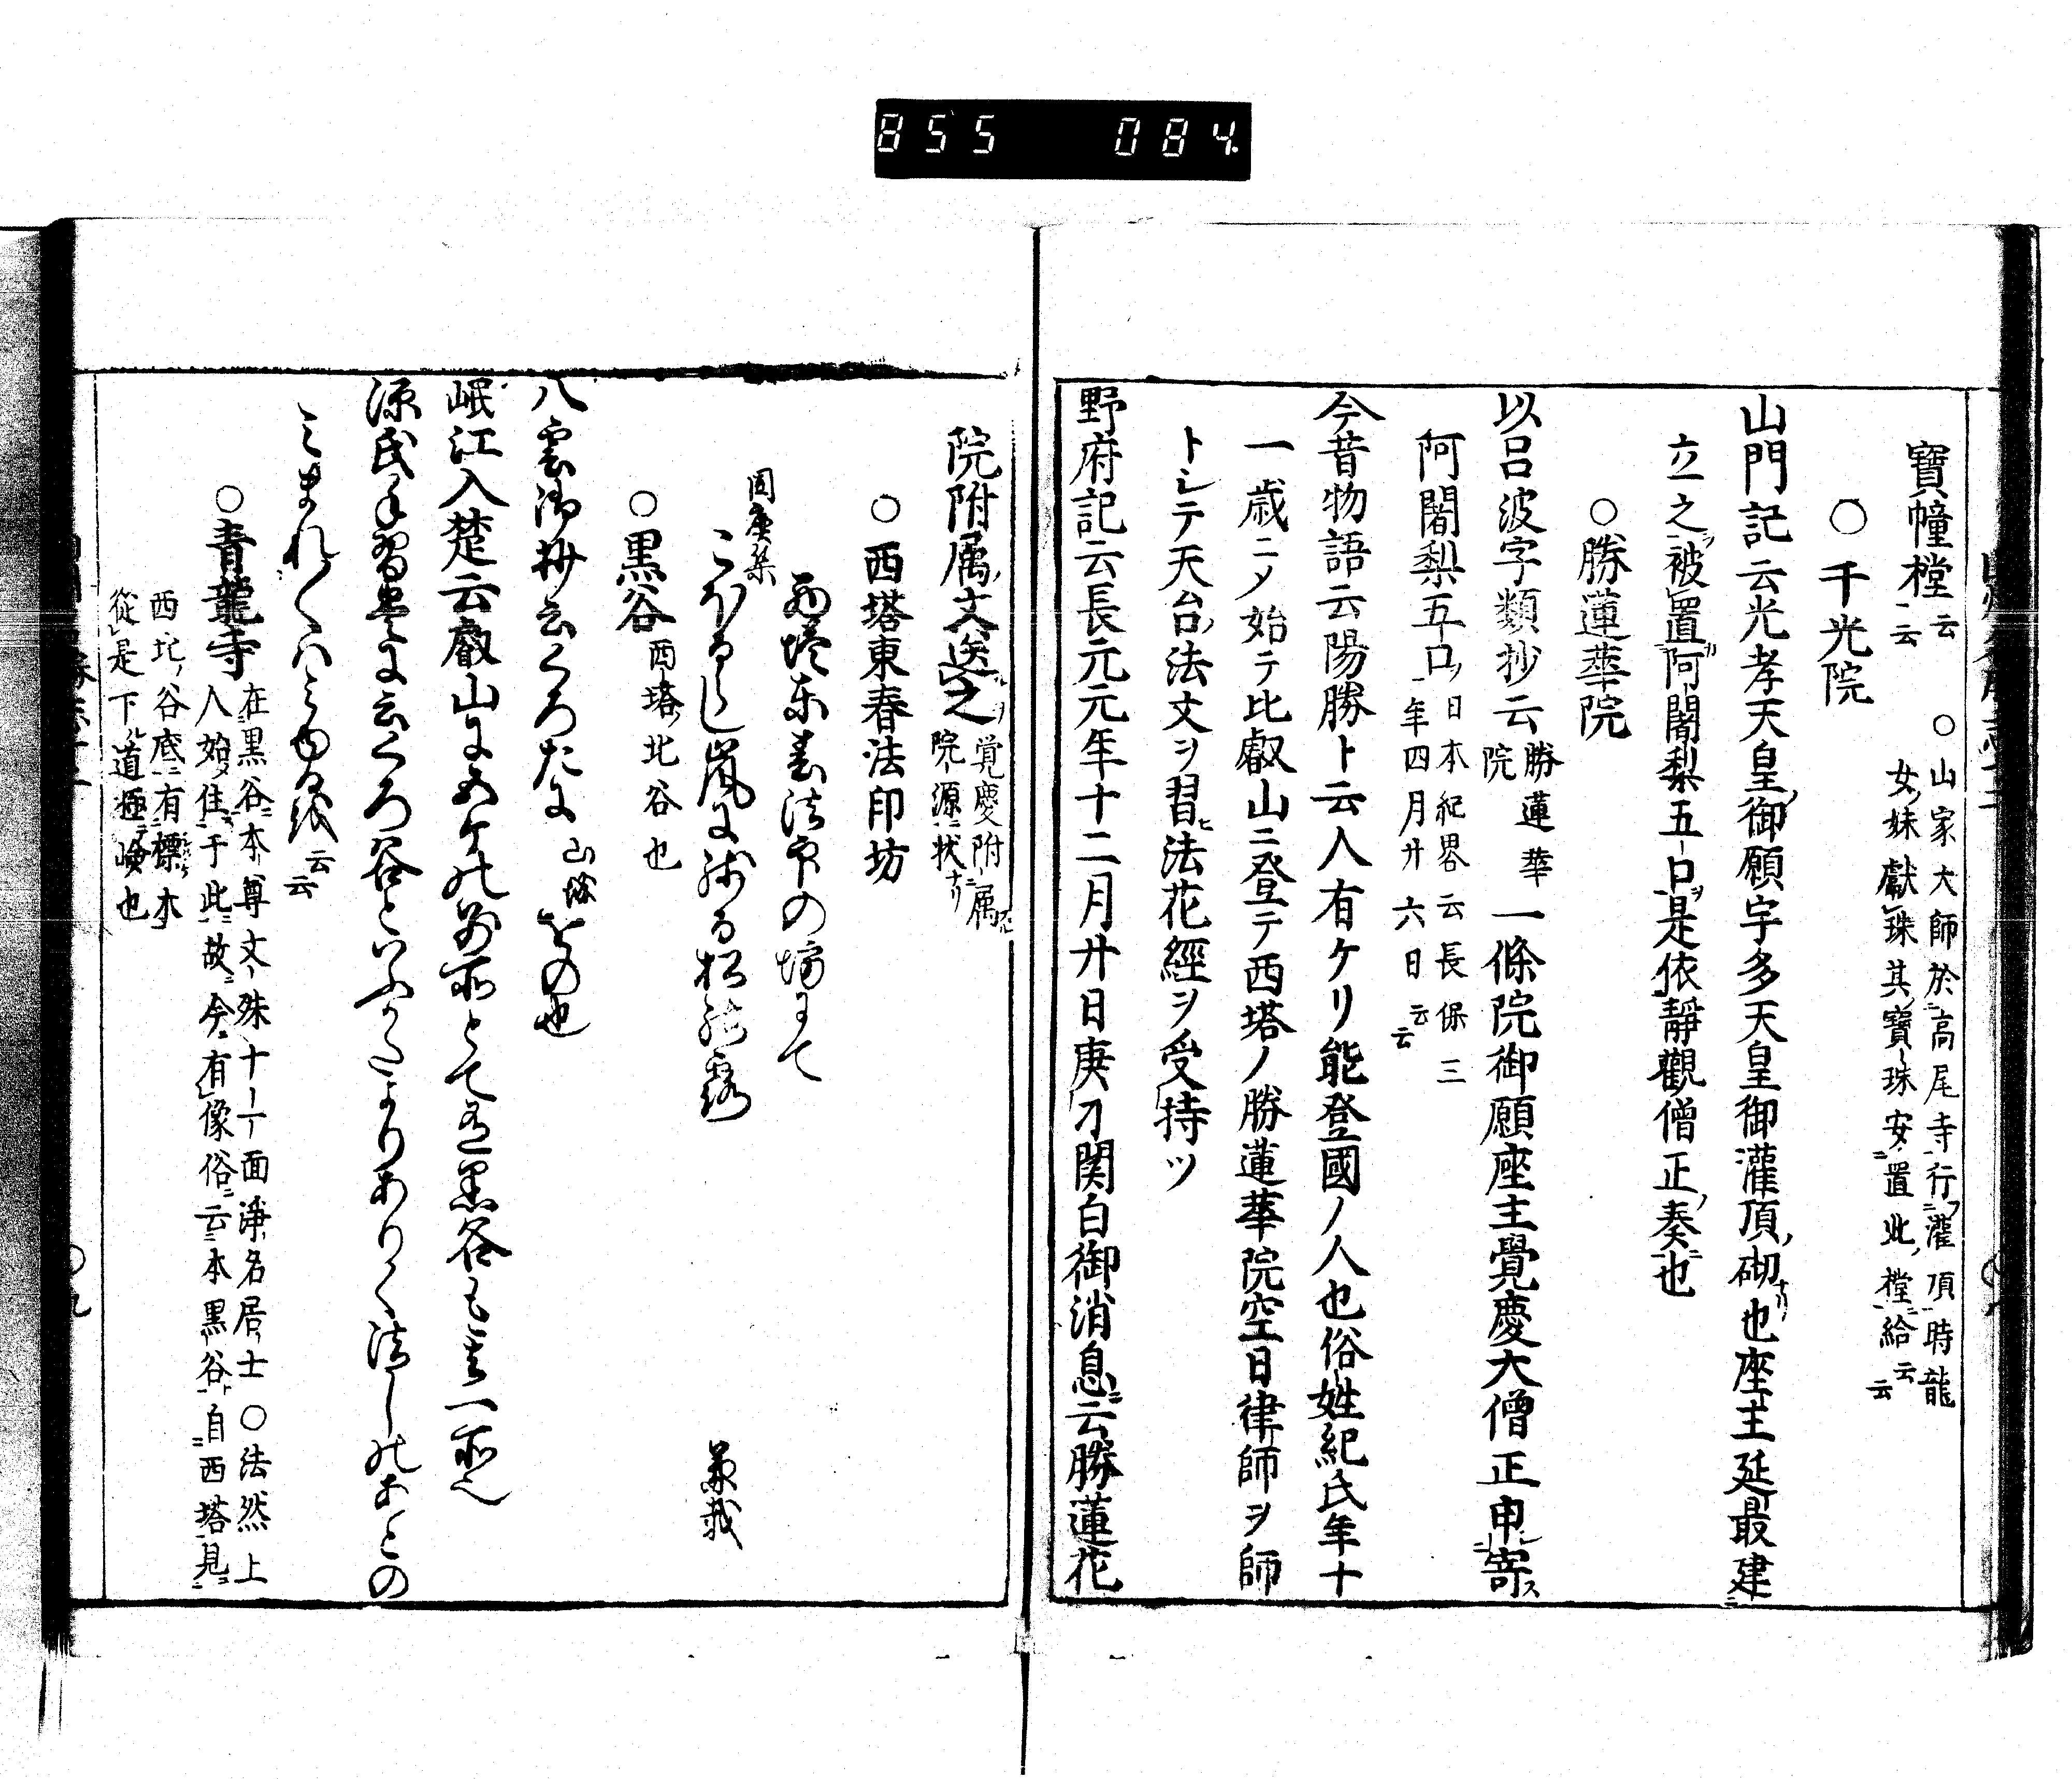 855 084
寶幢樘云云 ○山家大師於高尾寺行灌頂時龍
女妹獻珠其寶珠安置此樘給云云
○千光院
山門記云光孝天皇御願宇多天皇御灌頂砌也座主延最建
立之被置阿闍梨五口是依靜觀僧正奏也
○勝蓮華院
以呂波字類抄云勝蓮華院一條院御願座主覺慶大僧正申寄
阿闍梨五口日本紀畧云長保三年四月廿六日云云
今昔物語云陽勝ト云人有ケリ能登國ノ人也俗姓紀氏年十
一歳ニノ始テ比叡山ニ登テ西塔ノ勝蓮華院空日律師ヲ師
トシテ天台法文ヲ習ヒ法花經ヲ受持ツ
野府記云長元元年十二月廿日庚刀関白御消息云勝蓮花
院附属文送之覚慶附属院源状
○西塔東春法印坊
西塔東春法印の坊にて
こほるらし嵐に 松の露
兼載
○黒谷 西塔北谷也
八雲御抄云くろたに 山城
岷江入楚云叡山に五ケの別所とて有黒谷も其一所也
源氏手習巻に云くろ谷といふかたよりありく法しのあとの
みまれ〳〵はみゆる 云云
○青龍寺 在黒谷本尊文殊十一面浄名居士○法然上
人始住于此故今有像俗云本黒谷自西塔見
西北谷底有標木
從是下道極嶮也